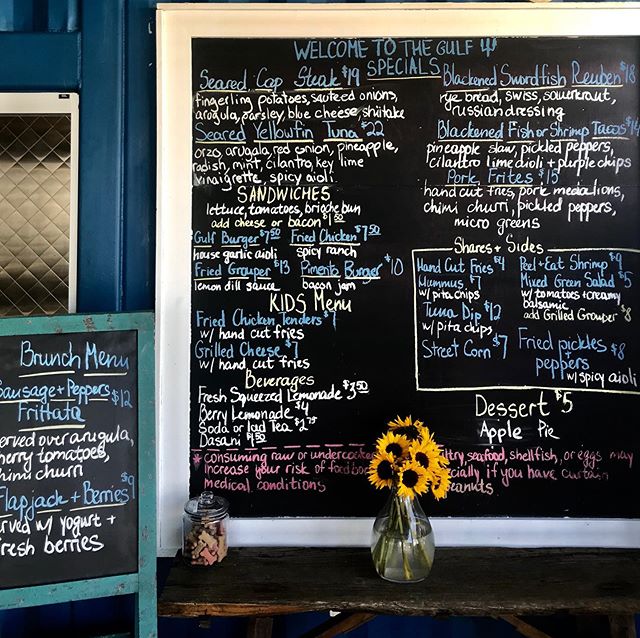 WELCOME TO THE GULF
SPECIALS
Seared Cap Steak $19
fingerling potatoes, sauteed onions,
arugula, parsley, blue cheese, shiitake
Seared Yellowfin Tuna $22
orzo, arugula, red onion, pineapple,
radish, mint, cilantro, key lime
vinaigrette, spicy aioli
SANDWICHES
lettuce, tomatoes, brioche bun
add cheese or bacon $1.50
Gulf Burger $7.50
house garlic aioli
Fried Chicken $7.50
spicy ranch
Fried Grouper $13
lemon dill sauce
Pimento Burger $10
bacon jam
KIDS Menu
Fried Chicken Tenders $7
w/ hand cut fries
Grilled Cheese $7
w/ hand cut fries
Beverages
Fresh Squeezed Lemonade $3.50
Berry Lemonade $4
Soda or Iced Tea $2.75
Dasani $1.50
Blackened Swordfish Reuben $18
rye bread, swiss, sauerkraut,
russian dressing
Blackened Fish or Shrimp Tacos $14
pineapple slaw, pickled peppers,
cilantro lime aioli + purple chips
Pork Frites $15
hand cut fries, pork medallions,
chimi churri, pickled peppers,
micro greens
Shares + Sides
Hand Cut Fries $4
Hummus $7
w/ pita chips
Tuna Dip $12
w/ pita chips
Street Corn $7
Peel + Eat Shrimp $9
Mixed Green Salad $5
w/ tomatoes + creamy
balsamic
add Grilled Grouper $8
Fried pickles $8
+
peppers
w/ spicy aioli
Dessert $5
Apple Pie
* consuming raw or undercooked
ltry, seafood, shellfish, or eggs may
increase your risk of
cially if you have curtain
medical conditions
peanuts.
Brunch Menu
Sausage + Peppers $12
Frittata
served over arugula,
cherry tomatoes,
chimi churri
Flapjack + Berries $9
served w/ yogurt +
fresh berries